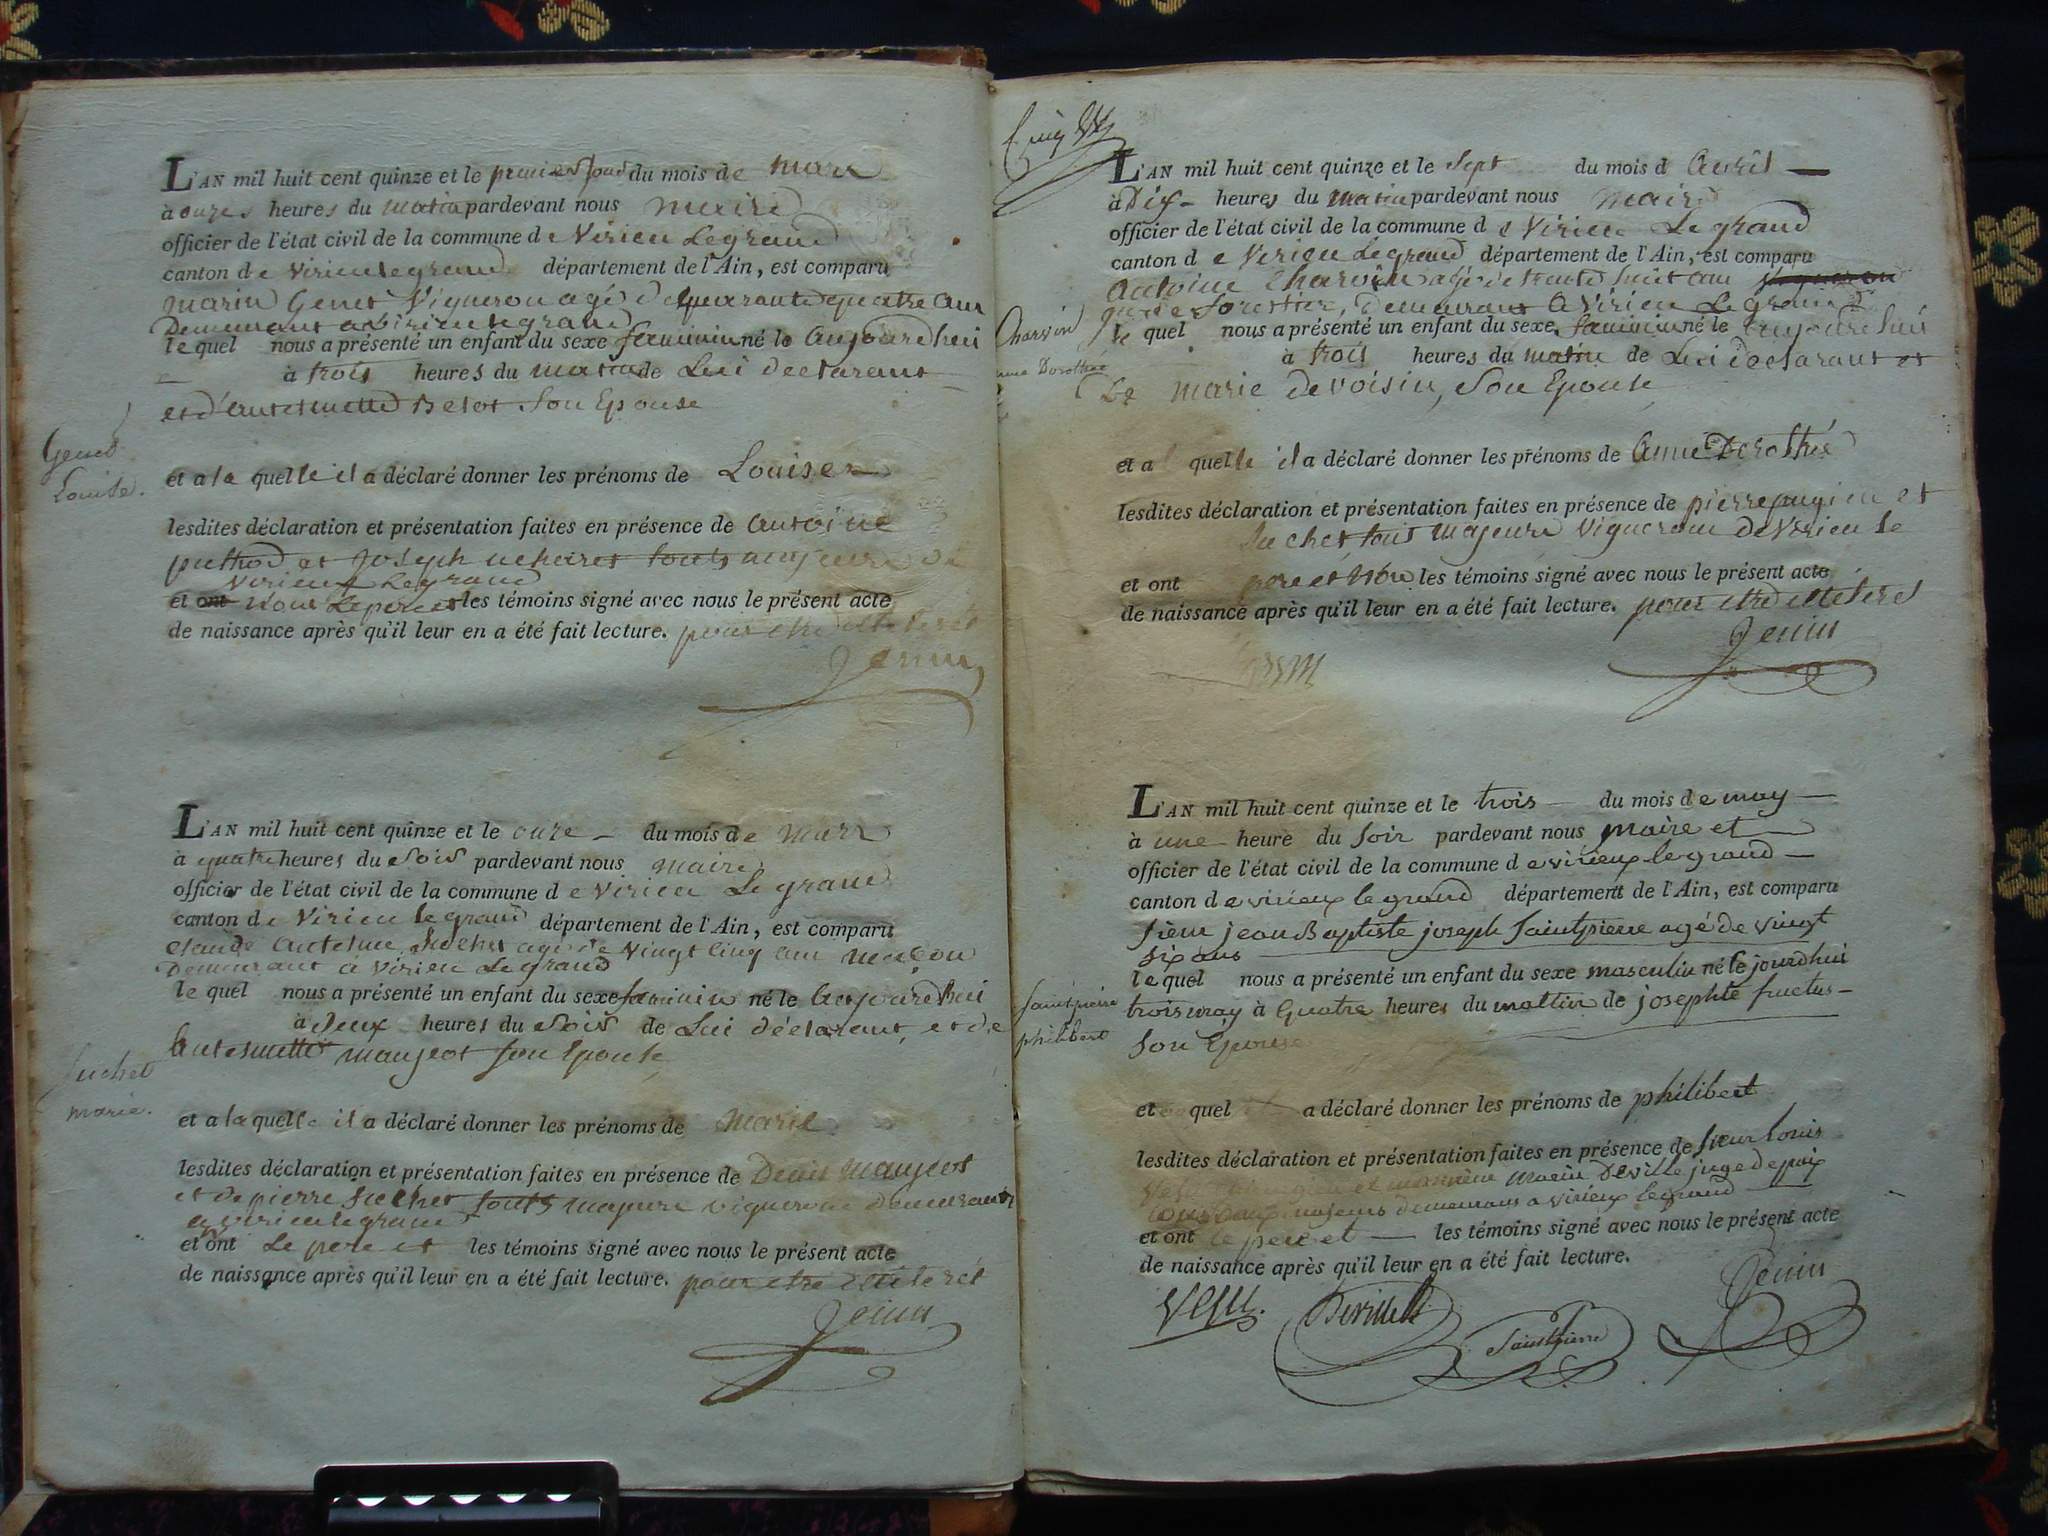 L'AN mil huit cent quinze et le premier jour du mois de mars
à onzes heures du matin pardevant nous maire
officier de l'état civil de la commune de Virieu Legrand
canton de Virieu legrand département de l'Ain, est comparu
marin Genet Vigneron agé de quarante quatre ans
Demeurant a Virieu legrand
le quel nous a présenté un enfant du sexe feminin né le aujourdhui
à trois heures du matin de Lui déclarant
et d'antelmette Belot Son Epouse
Genet
Louise.
et a la quelle il a déclaré donner les prénoms de Louise
lesdites déclaration et présentation faites en présence de antoine
puthod et Joseph touts majeurs de
Virieu Legrand
et ont nous Le pere et les témoins signé avec nous le présent acte
de naissance après qu'il leur en a été fait lecture. pour etre
Jenin
L'AN mil huit cent quinze et le onze du mois de mars
à quatre heures du Soir pardevant nous maire
officier de l'état civil de la commune de Virieu Le grand
canton de Virieu le grand département de l'Ain, est comparu
Claude antelme Suchet agé de vingt cinq ans maçon
Demeurant à Virieu Legrand
le quel nous a présenté un enfant du sexe feminin né le aujourdhui
à Deux heures du Soir de Lui déclarant, et de
antelmette maujeot Son Epouse
Suchet
marie.
et a la quelle il a déclaré donner les prénoms de marie
lesdites déclaration et présentation faites en présence de Denis maujeot
et de pierre Suchet touts majeurs vignerons demeurants
a virieu legrand
et ont Le pere et les témoins signé avec nous le présent acte
de naissance après qu'il leur en a été fait lecture. pour etre
Jenin
L'AN mil huit cent quinze et le Sept du mois d avril
à Dix heures du matin pardevant nous maire
officier de l'état civil de la commune de Virieu Le grand
canton de Virieu Legrand département de l'Ain, est comparu
antoine Charvin agé de trente huit ans vigneron
garde forestier, demeurant a Virieu Le grand
Charvin
anne Dorothée
le quel nous a présenté un enfant du sexe feminin né le aujourdhui
à trois heures du matin de Lui déclarant et
De marie devoisin, Son Epouse
et a l quelle il a déclaré donner les prénoms de anne Dorothée
lesdites déclaration et présentation faites en présence de pierre pugieu et
Suchet tous majeurs vignerons de Virieu le
et ont pere et nous les témoins signé avec nous le présent acte
de naissance après qu'il leur en a été fait lecture. pour etre
Jenin
L'AN mil huit cent quinze et le trois du mois de may
à une heure du soir pardevant nous maire et
officier de l'état civil de la commune de virieux le grand
canton de virieux le grand département de l'Ain, est comparu
sieur jean Baptiste joseph Saintpierre agé de vingt
six ans
le quel nous a présenté un enfant du sexe masculin né le jourdhui
trois may à Quatre heures du mattin de josephte fructus
Son Epouse
Saintpierre
philibert
et quel a déclaré donner les prénoms de philibert
lesdites déclaration et présentation faites en présence de sieur Louis
et monsieur marin Deville juge de paix
tous deux majeurs demeurans a virieux legrand
et ont le pere et les témoins signé avec nous le présent acte
de naissance après qu'il leur en a été fait lecture.
Deville
Saintpierre
Jenin